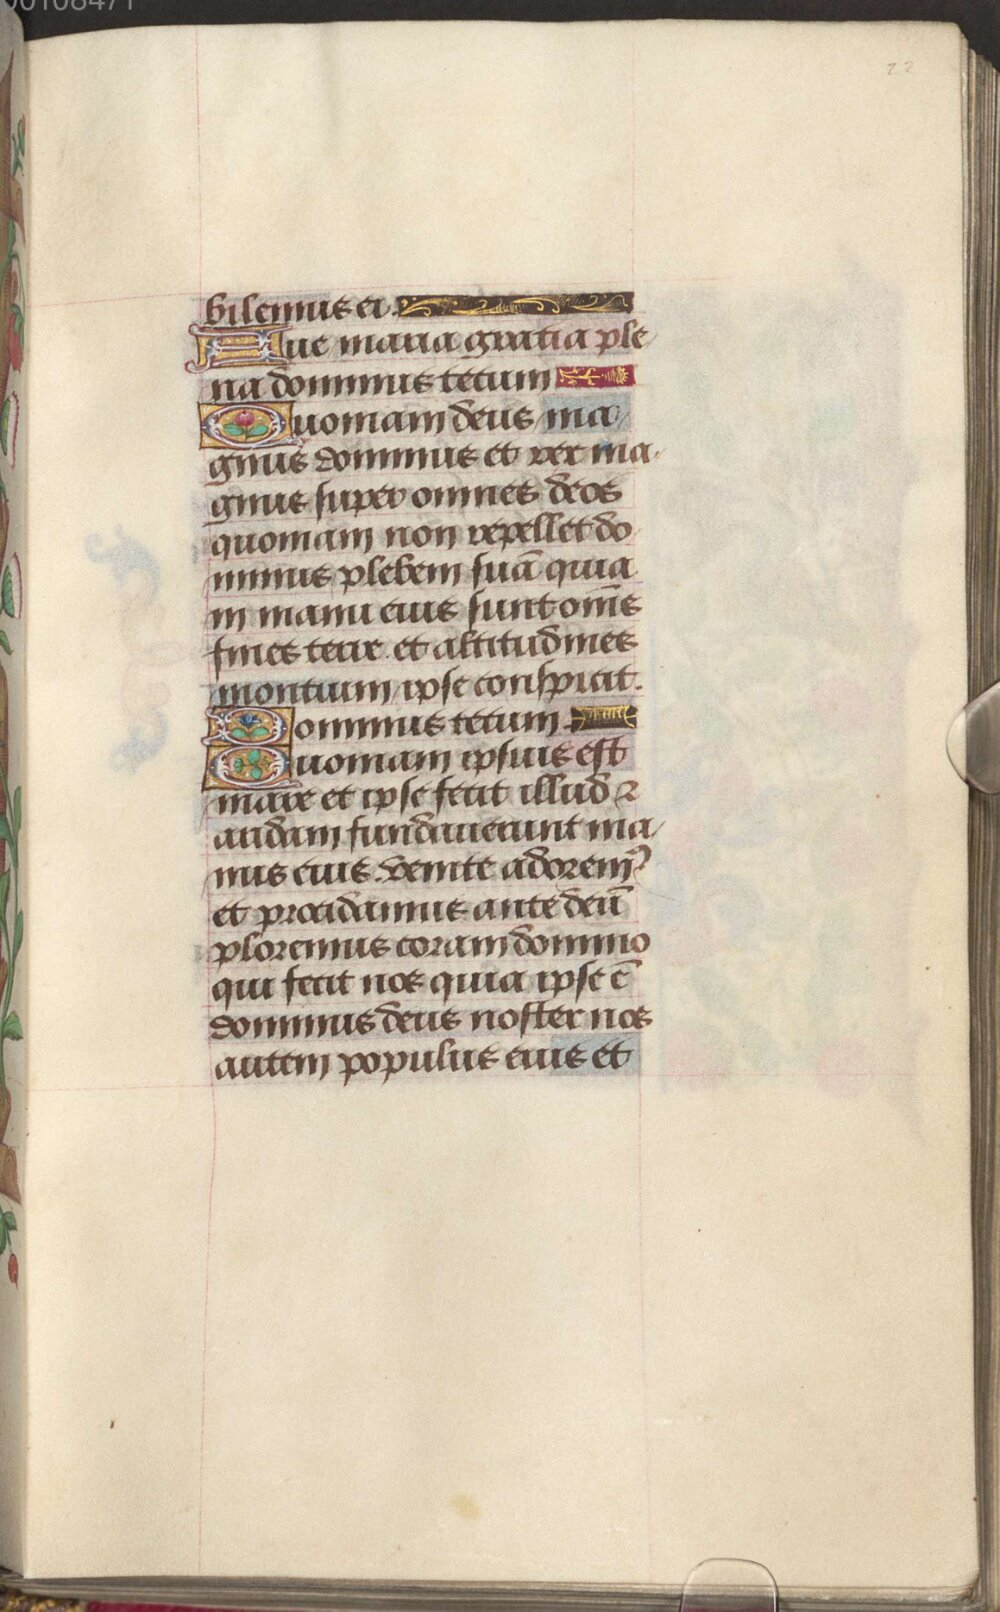 00108471
22
bilemus ei.
Aue maria gratia ple
na dominus tecum
Quoniam deus ma
gnus dominus et rex ma
gnus super omnes deos
quoniam non repellet do
minus plebem suā quia
in manu eius sunt om̄s
fines terre et altitudines
montium ipse conspicit.
Dominus tecum.
Quoniam ipsius est
mare et ipse fecit illud ⁊
aridam fundauerunt ma
nus eius. Venite adorem⁹
et procidamus ante deū
ploremus coram domino
qui fecit nos quia ipse ē
dominus deus noster nos
autem populus eius et